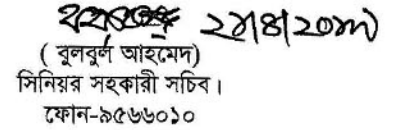 ( বুলবুল আহমেদ)
সিনিয়র সহকারী সচিব।
ফোন-৯৫৬৬০১০